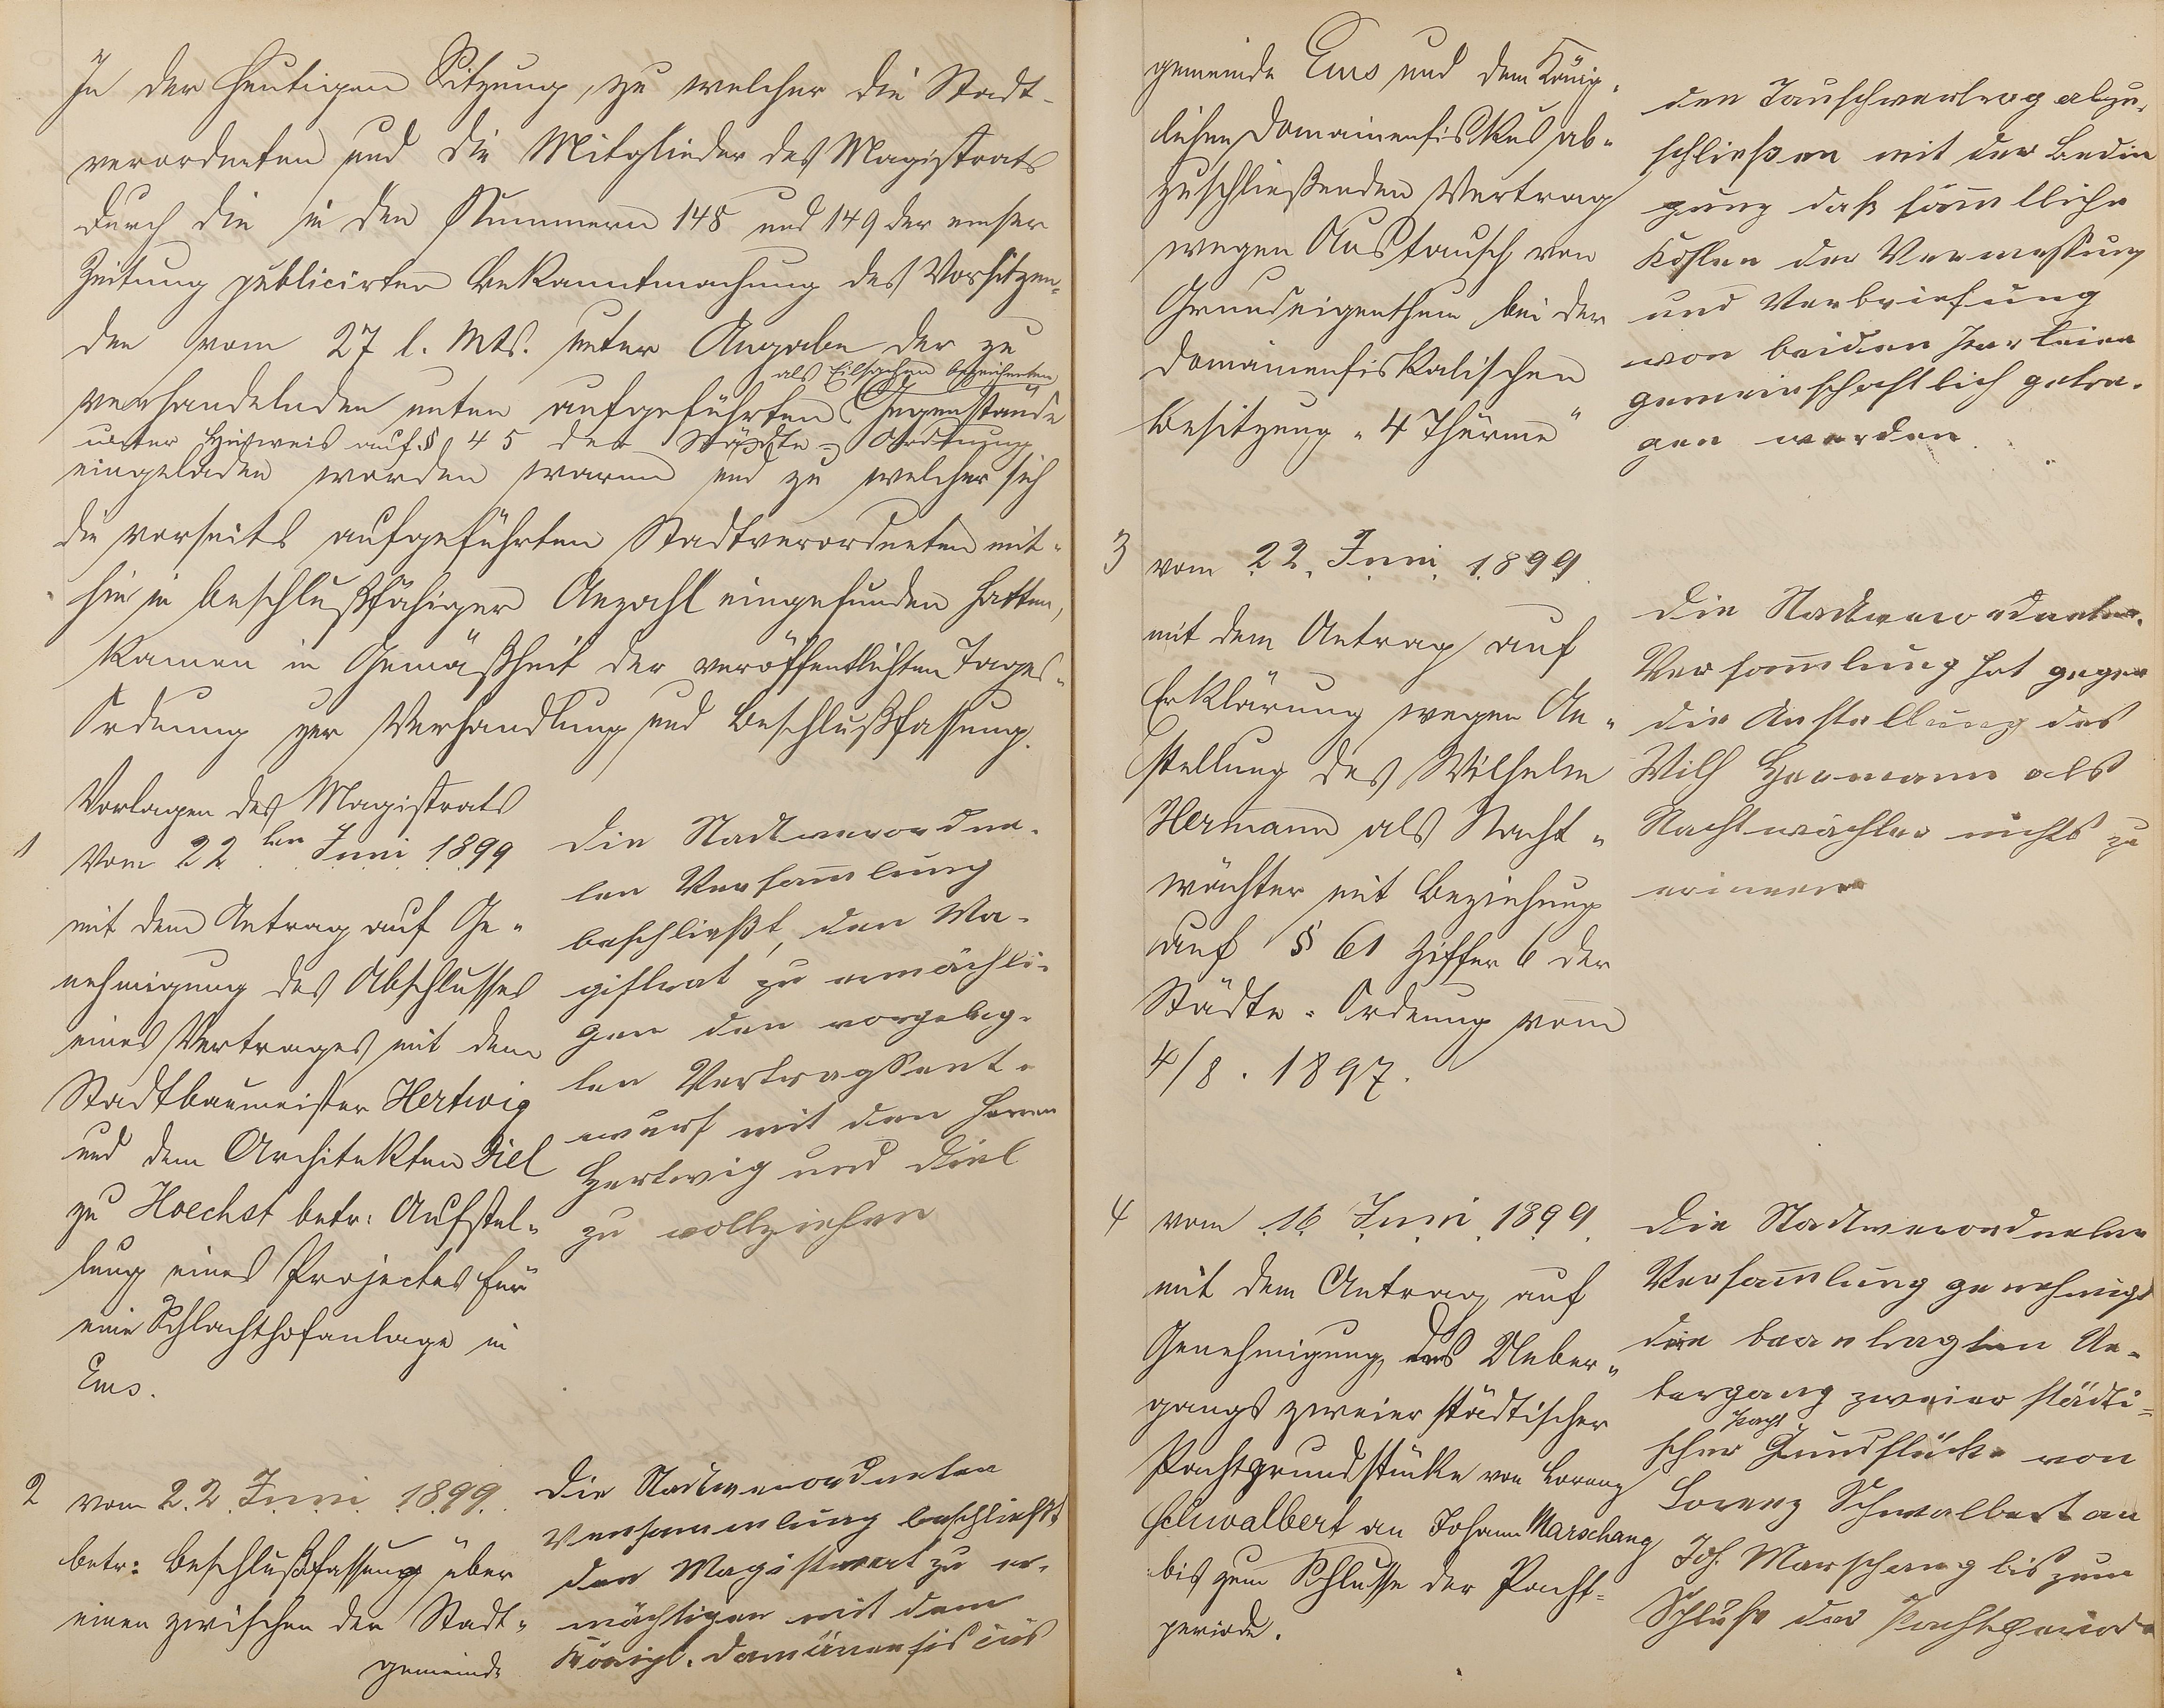 In der heutigen Sitzung, zu welcher die Stadt-
verordneten und die Mitglieder des Magistrats
durch die in den Nummern 148 und 149 der emser
Zeitung publicirten Bekanntmachung des Vorsitzen-
den vom 27 l. Mts. unter Angabe der zu
als Eilsachen bezeichneten
verhandelnden unten aufgeführten Gegenstände
unter Hinweis auf § 45 der Städte-Ordnung
eingeladen worden waren und zu welcher sich
die vorseits aufgeführten Stadtverordneten mit-
hin in beschlußfähiger Anzahl eingefunden hatten,
kamen in Gemäßheit der veröffentlichten Tages-
Ordnung zur Verhandlung und Beschlußfassung.
Vorlagen des Magistrats
1 Vom 22ten Juni 1899
mit dem Antrag auf Ge-
nehmigung des Abschlusses
eines Vertrages mit dem
Stadtbaumeister Hertwig
und dem Architekten Diel
zu Hoechst betr: Aufstel-
lung eines Projectes für
eine Schlachthofanlage in
Ems.
Die Stadtverordne-
ten Versam̄lung
beschließt, den Ma-
gistrat zu ermächti-
gen den vorgeleg-
ten Vertragsent-
wurf mit den Herren
Hertwig und Diel
zu vollziehen
2 vom 22. Juni 1899.
betr: Beschlußfassung über
einen zwischen der Stadt-
gemeinde
Die Stadtverordneten
Versammlung beschließt
den Magistrat zu er-
mächtigen mit dem
Königl. Domänenfiscus
gemeinde Ems und dem König-
lichen Domainenfiskus ab-
zuschließenden Vertrag
wegen Austausch von
Grundeigenthum bei der
domainenfiskalischen
Besitzung "4 Thürme"
den Tauschvertrag abzu-
schließen mit der Bedin
gung daß säm̄tliche
Kosten der Vermessung
und Verbriefung
von beiden Parteien
gemeinschaftlich getra-
gen werden.
3 vom 22. Juni 1899
mit dem Antrag auf
Erklärung wegen An-
stellung des Wilhelm
Hermann als Nacht-
wächter mit Beziehung
auf § 61 Ziffer 6 der
Städte-Ordnung vom
4/8. 1897.
Die Stadtverordneten-
Versam̄lung hat gegen
die Anstellung des
Wilh Hermann als
Nachtwächter nichts zu
erinnern
4 vom 16 Juni 1899.
mit dem Antrag auf
Genehmigung des Ueber-
gangs zweier städtischer
Pachtgrundstücke von Lorenz
Schwalbert an Johann Marschang
bis zum Schlusse der Pacht-
periode.
Die Stadtverordneten
Versam̄lung genehmigt
den beantragten Ue-
bergang zweier städti-
Pacht
scher Gundstücke von
Lorenz Schwalbert an
Joh. Marschang bis zum
Schluße der Pachtperiode